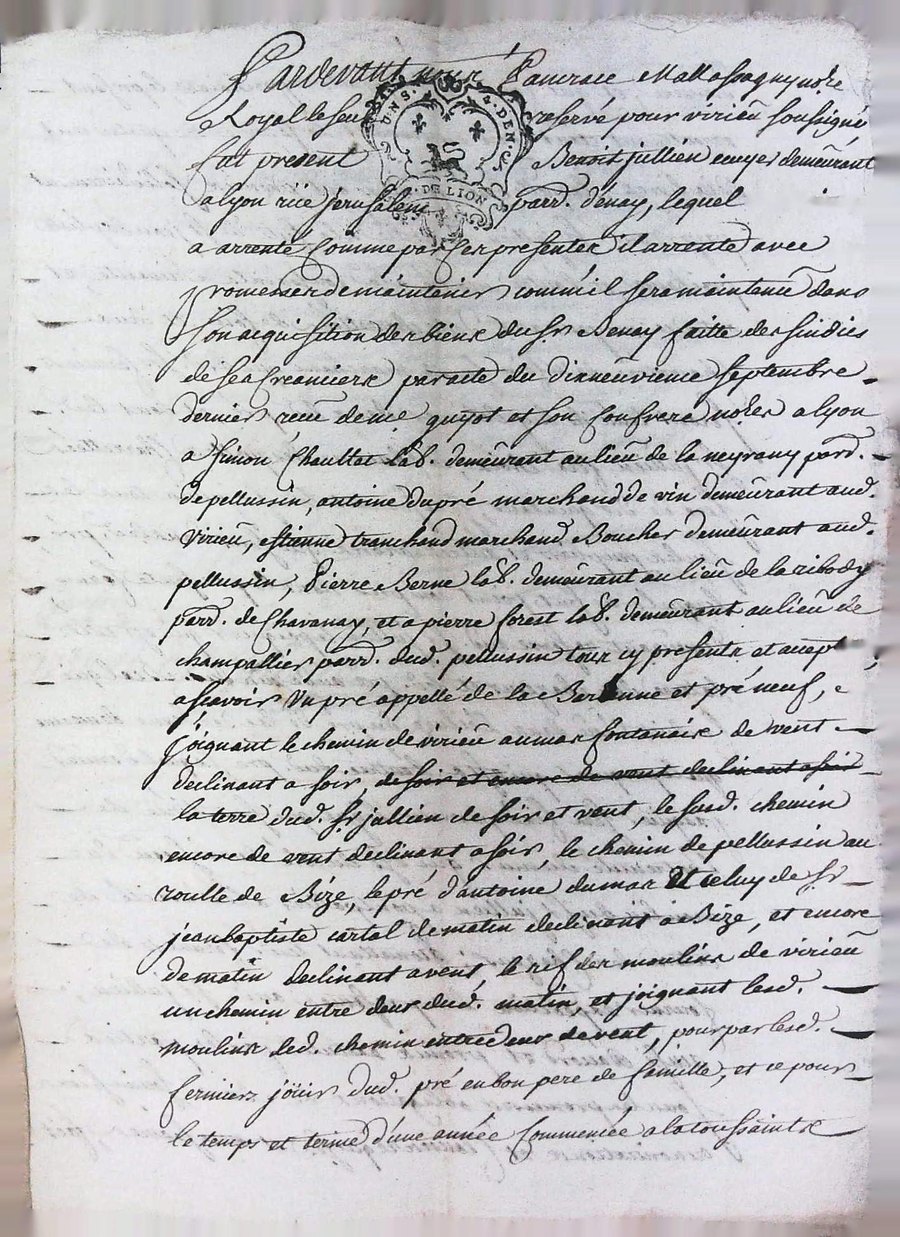 Pardevant nous Pancrace Mallassagny no.re
Royal le seul reservé pour virieû soussigné
U.N.S. 4. DEN.
DE LION
fut present Benoit jullien ecuyer demeûrant
a lyon rüe jerusalem parr. d'enay, lequel
a arrenté comme par ces presentes il arrente avec
promesses de maintenir comm'il sera maintenû dans
son acquisition des biens du sr. Benay faitte des sindics
de sea creanciers par acte du dixneuvieme septembre
dernier reçû de me guyot et son confrere no.res a lyon
a simon Chaultat lab. demeûrant au lieû de la neyrany parr.
de pellussin, antoine dupré marchand de vin demeûrant aud.
virieû, estienne tranchand marchand Boucher demeûrant aud.
pellussin, pierre Berne lab. demeûrant au lieû de la ribody
parr. de Chavanay, et a pierre forest lab. demeûrant au lieû de
champallier parr. dud. pellussin tous cy presents et accept.
ascavoir un pré appellé de la et pré neuf,
joignant le chemin de virieû au mas fontanais de vent
declinant a soir, de soir et encore de vent declinant a soir
la terre dud. sr. jullien de soir et vent, le susd. chemin
encore de vent declinant a soir, le chemin de pellussin au
roulle de Bize, le pré d'antoine dumas et celuy de sr.
jean baptiste cartal de matin declinant à Bize, et encore
de matin declinant a vent, le rif des moulins de virieû
un chemin entre deux dud. matin, et joignant lesd.
moulins led. chemin entredeux de vent, pour par lesd.
fermiers joüir dud. pré en bon pere de famille, et ce pour
le temps et terme d'une année commencée a la toussaints